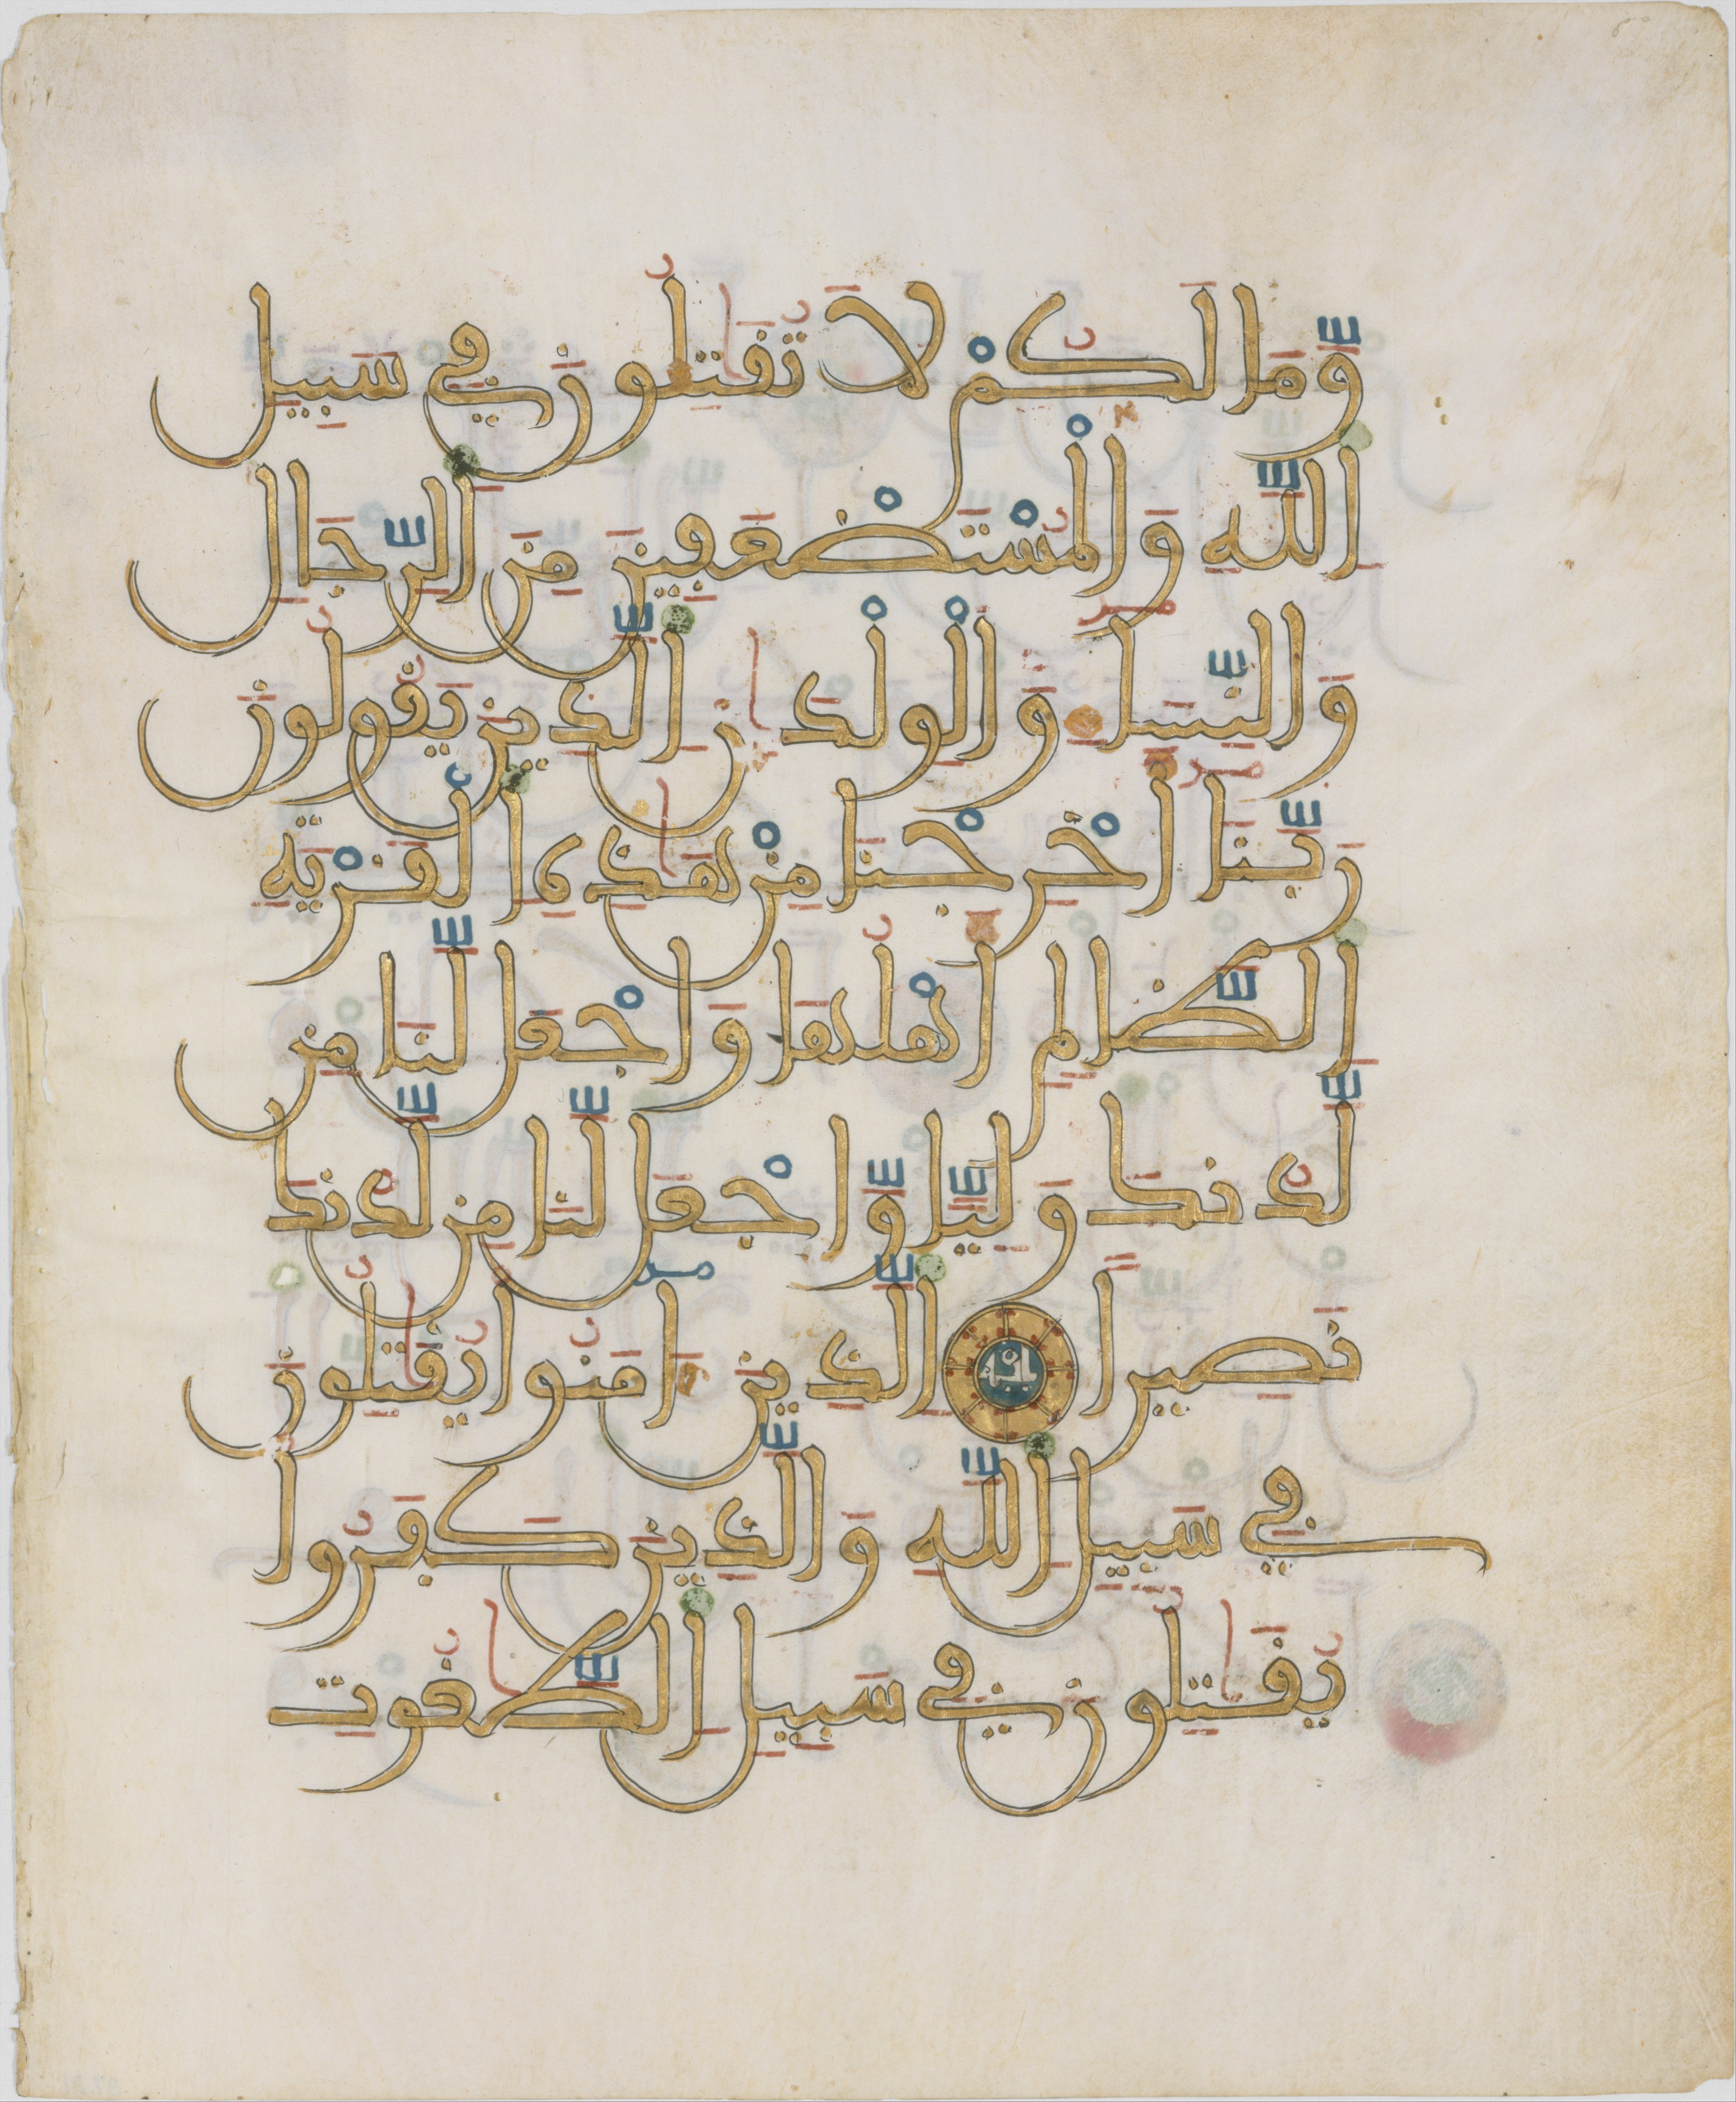 وَّمَا لَكُمْ لَا تُقَٰتِلُونَ فِي سَبِيلِ
اِ۬للَّهِ وَالْمُسْتَضْعَفِينَ مِنَ اَ۬لرِّجَالِ
وَالنِّسَآءِ وَالْوِلْدَٰنِ اِ۬لذِينَ يَقُولُونَ
رَبَّنَا أَخْرِجْنَا مِنْ هَٰذِهِ اِ۬لْقَرْيَةِ
اِ۬لظَّالِمِ أَهْلُهَا وَاجْعَل لَّنَا مِن
لَّدُنكَ وَلِيّاً وَّاجْعَل لَّنَا مِن لَّدُنكَ
نَصِيراً اَ۬لَّذِينَ ءَامَنُوا يُقَٰتِلُونَ
فِي سَبِيلِ اِ۬للَّهِ وَالَّذِينَ كَفَرُوا
يُقَٰتِلُونَ فِي سَبِيلِ اِ۬لطَّٰغُوتِ